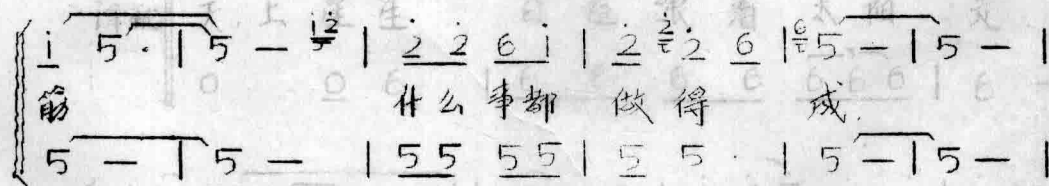 i 5 · | 5 — i2 | 2 2 6 i | 2 2 2 6 | 6 5 — | 5 — |
筋 什么事都 做得 成.
5 — | 5 — | 5 5 5 5 | 5 5 · | 5 — | 5 — |